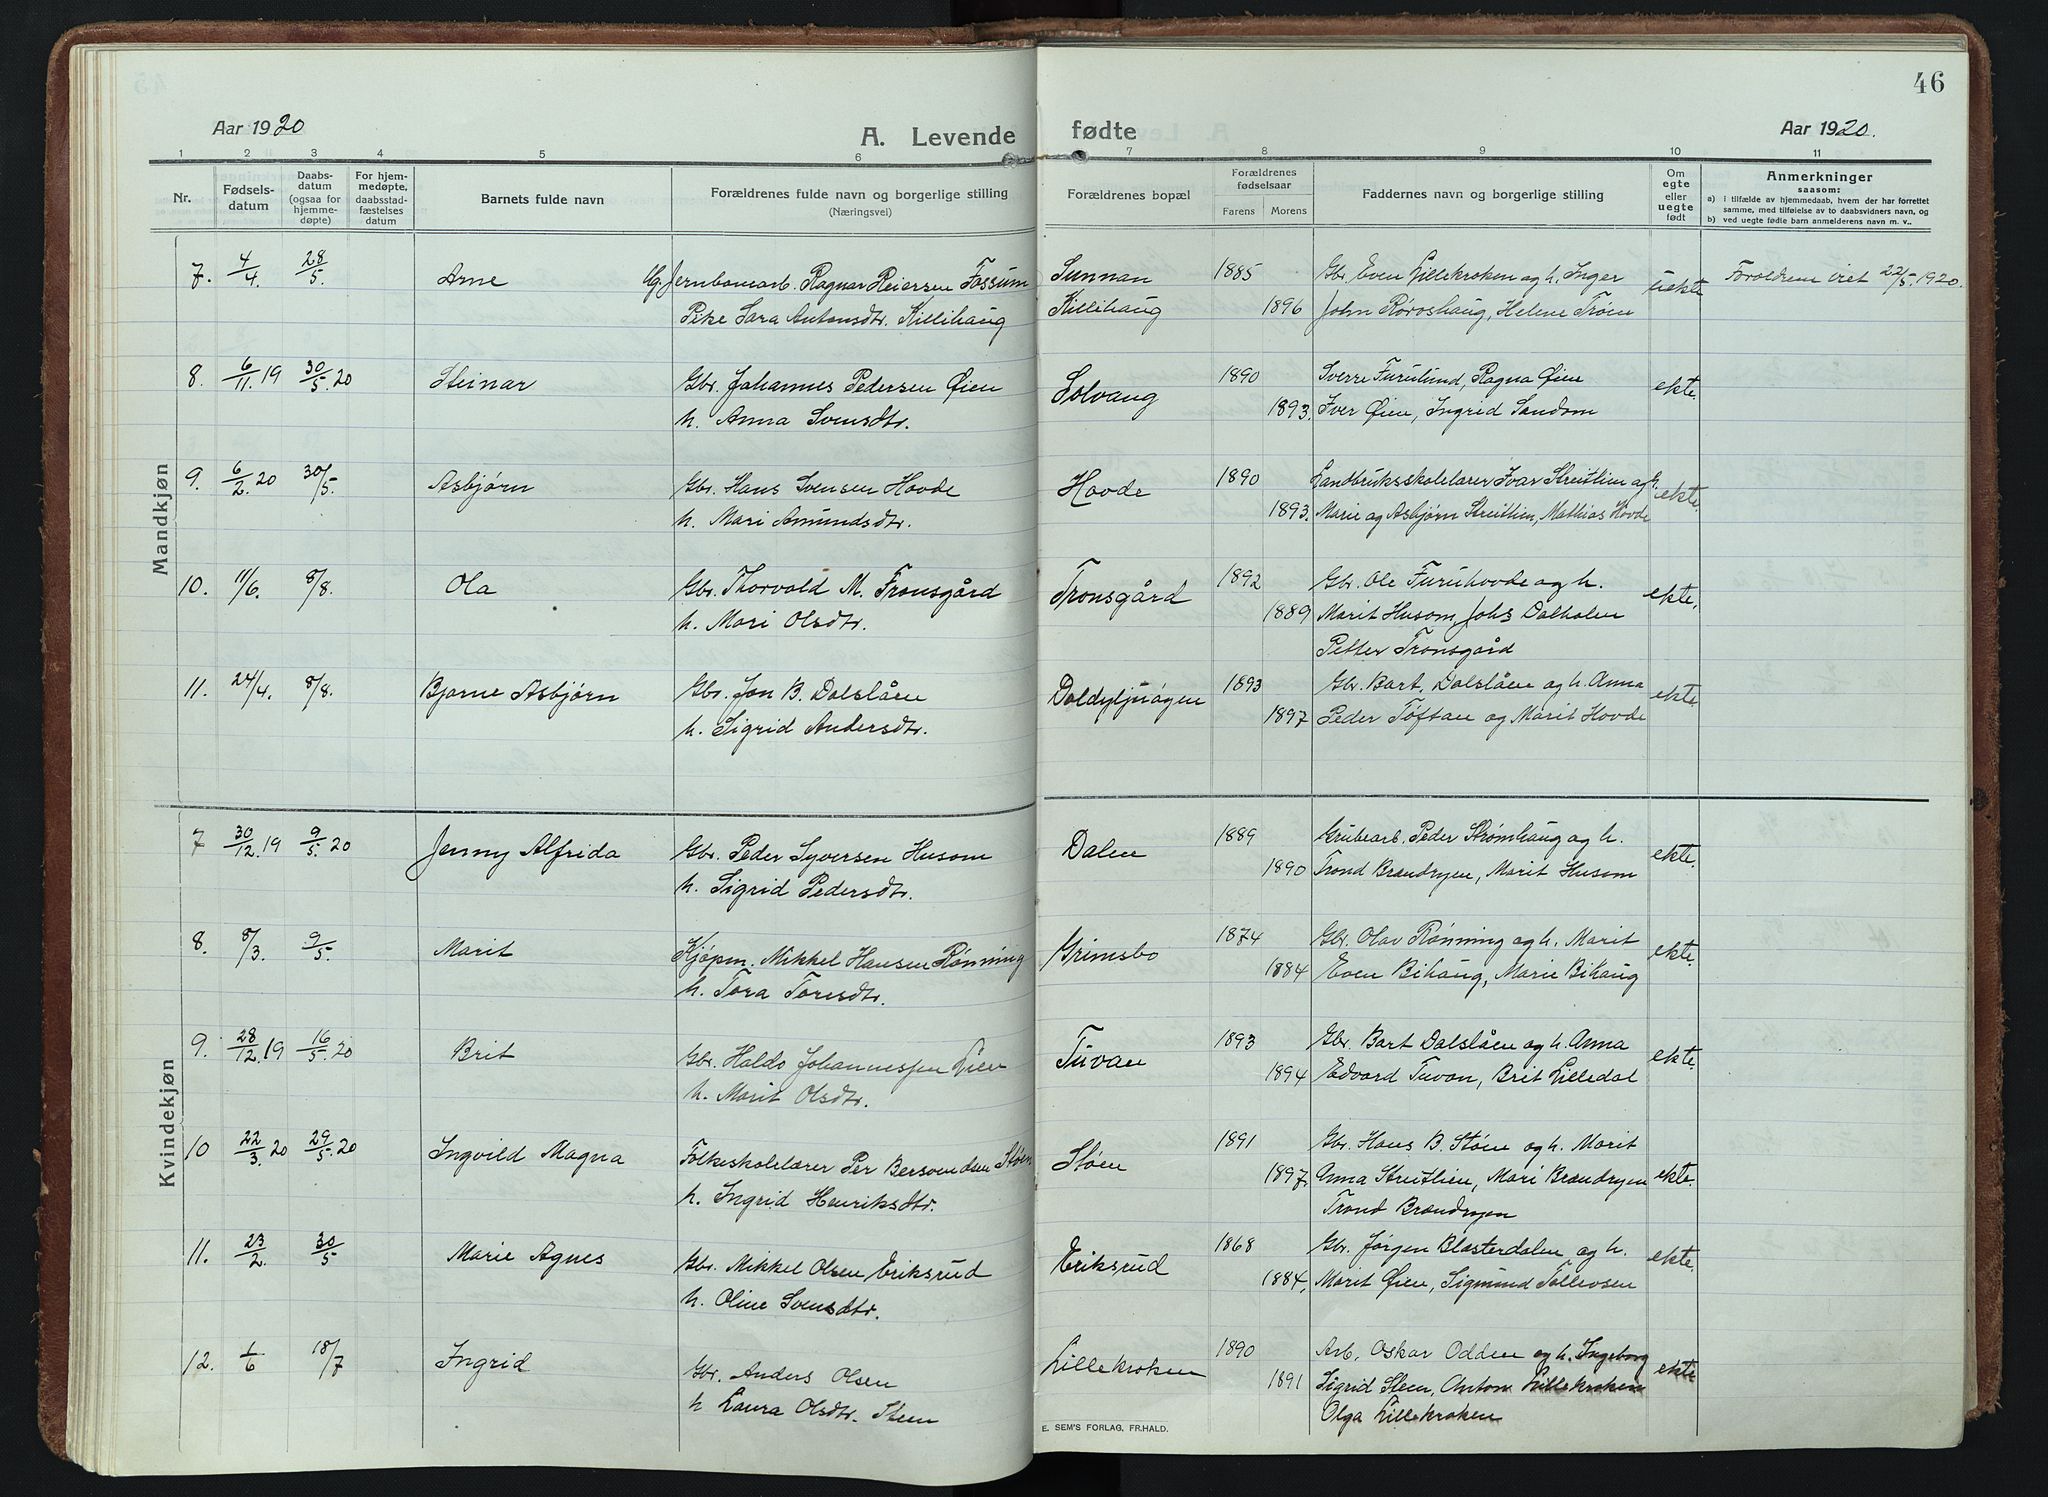 46
Aar 1920
A. Levende fødte
Aar 1920.
1 2 3 4 5 6 7 8 9 10 11
Nr.
Fødselsdatum
Daabsdatum (ogsaa for hjemmedøpte)
For hjemmedøpte, daabsstadfæstelses datum
Barnets fulde navn
Forældrenes fulde navn og borgerlige stilling
(Næringsvei)
Forældrenes bopæl
Forældrenes fødselsaar
Farens Morens
Faddernes navn og borgerlige stilling
Om egte eller uegte født
Anmerkninger
saasom:
a) i tilfælde av hjemmedaab, hvem der har forrettet samme, med tilføielse av to daabsvidners navn, og
b) ved uegte fødte barn anmelderens navn m. v..
Mandkjøn
7. 4/4. 28/5. Arne Ug. Jernbanearb. Ragnar Reiersen Fossum Sunnan 1885 Gbr. Even Lillekroken og h. Inger uekte Foreldrene viet 22/5. 1920.
Pike Sara Antonsdtr. Killihaug Killihaug 1896 John Røroshaug, Helene Trøen
8. 6/11. 19 30/5. 20 Steinar Gbr. Johannes Pedersen Øien Solvang 1890 Sverre Furulund, Ragna Øien ekte.
h. Anna Svensdtr. 1893. Iver Øien, Ingrid Sandom
9. 6/2. 20 30/5. Asbjørn Gbr. Hans Svensen Hovde Hovde 1890 Landbruksskolelærer Ivar Streitlien og h. ekte.
h. Mari Amundsdtr. 1893. Marie og Asbjørn Streitlien, Mathias Hovde
10. 11/6. 8/8. Ola Gbr. Thorvald M. Tronsgård Tronsgård 1892 Gbr. Ole Furuhovde og h. ekte.
h. Mari Olsdtr. 1889 Marit Husom, Johs Dalholen
Petter Tronsgård
11. 24/4. 8/8. Bjarne Asbjørn Gbr. Jon B. Dalslåen 1893 Gbr. Bart. Dalslåen og h. Anna ekte.
h. Sigrid Andersdtr. 1897 Peder Tøftan og Marit Hovde
Kvindekjøn
7 30/12. 19 9/5. 20 Jenny Alfrida Gbr. Peder Syversen Husom Dalen 1889 Grubearb. Peder Strømhaug og h. ekte.
h. Sigrid Pedersdtr. 1890 Trond Brændryen, Marit Husom
8. 8/3. 9/5. Marit Kjøpm. Mikkel Hansen Rønning Grimsbo 1874 Gbr. Olav Rønning og h. Marit ekte.
h. Tora Toresdtr. 1884 Even Bihaug, Marie Bihaug
9. 28/12. 19 16/5. 20 Brit Gbr. Haldo Johannessen Lien Tuvan 1893 Gbr. Bart Dalslåen og h. Anna ekte.
h. Marit Olsdtr. 1894 Edvard Tuvan, Brit Lilledal
10 22/3. 20 29/5. 20 Ingvild Magna Folkeskolelærer Per Bersvendsen Støen Støen 1891 Gbr. Hans B Støen og h. Marit ekte.
h. Ingrid Henriksdtr. 1897. Anna Streitlien, Mari Brændryen
Trond Brændryen
11. 23/2. 30/5 Marie Agnes Gbr. Mikkel Olsen Eriksrud Eriksrud 1868 Gbr. Jørgen Blæsterdalen og h. ekte.
h. Oline Svensdtr. 1884, Marit Øien, Sigmund Tollevsen
12. 1/6 18/7 Ingrid Gbr. Anders Olsen Lillekroken 1890 Arb. Oskar Odden og h. Ingeborg ekte
h Laura Olsdtr. Steen 1891 Sigrid Steen, Anton Lillekroken
Olga Lillekroken
E. SEM'S FORLAG, FR.HALD.